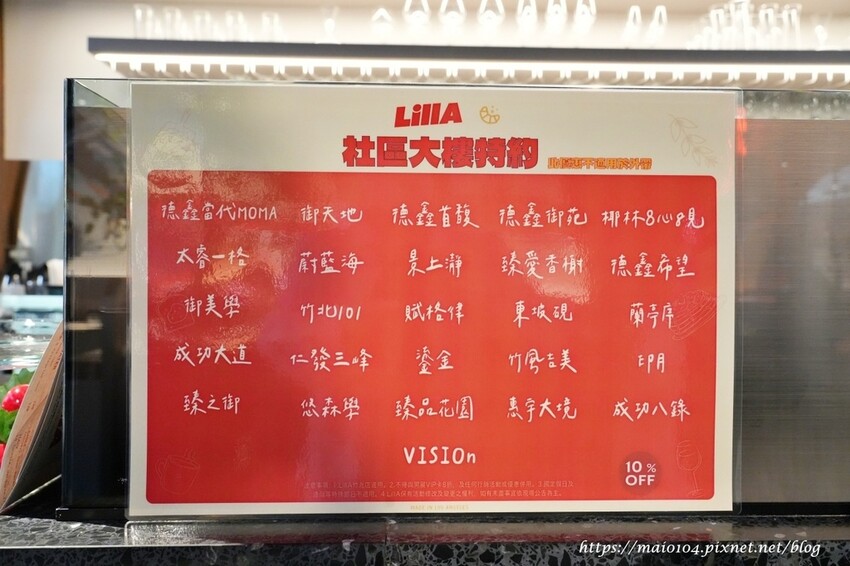 LillA
社區大樓特約 此優惠不適用於外帶
德鑫當代MOMA 御天地 德鑫首馥 德鑫御苑 椰林8心8見
太睿一格 蔚藍海 景上瀞 臻愛香榭 德鑫希望
御美學 竹北101 賦格律 東坡硯 蘭亭序
成功大道 仁發三峰 鎏金 竹風吉美 印月
臻之御 悠森學 臻品花園 惠宇大境 成功八錦
VISIOn
10% OFF
MADE IN LOS ANGELES
https://maio104.pixnet.net/blog